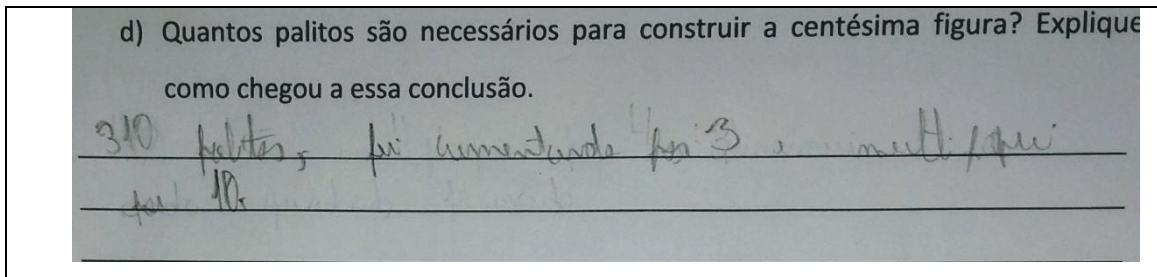 d) Quantos palitos são necessários para construir a centésima figura? Explique
como chegou a essa conclusão.
310 palitos, fui aumentando por 3 e multipliquei
por 10.